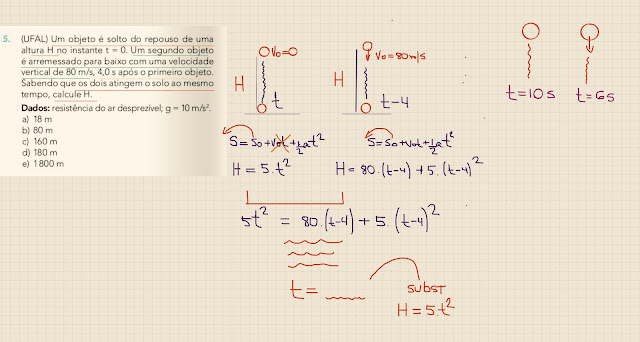 5. (UFAL) Um objeto é solto do repouso de uma
altura H no instante t = 0. Um segundo objeto
é arremessado para baixo com uma velocidade
vertical de 80 m/s, 4,0 s após o primeiro objeto.
Sabendo que os dois atingem o solo ao mesmo
tempo, calcule H.
Dados: resistência do ar desprezível; g = 10 m/s².
a) 18 m
b) 80 m
c) 160 m
d) 180 m
e) 1 800 m
V₀=0
H
t
V₀=80m/s
H
t-4
t=10s
t=6s
S=S₀+V₀t+½at²
H=5.t²
S=S₀+V₀t+½at²
H=80.(t-4)+5.(t-4)²
5t² = 80.(t-4)+5.(t-4)²
t=
SUBST
H=5.t²